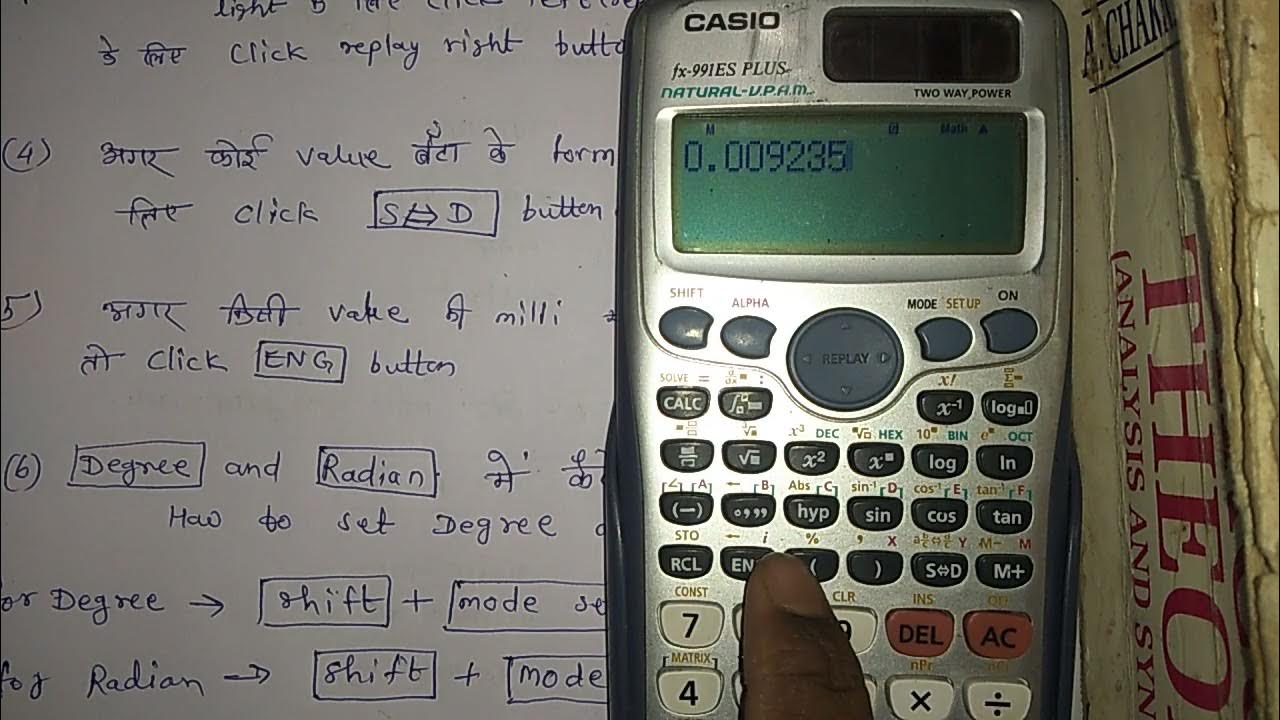 light के लिए click
के लिए Click replay right
(4) अगर कोई value बँटा के form
लिए click S⇔D button
5) अगर किसी value की milli
तो Click ENG button
(6) Degree and Radian में
How to set Degree
for Degree → shift + mode
for Radian → shift + mode
CASIO
fx-991ES PLUS
NATURAL-V.P.A.M.
TWO WAY POWER
M D Math ▲
0.009235
SHIFT ALPHA MODE SETUP ON
REPLAY
SOLVE = d/dx : x! Σ
CALC x⁻¹ log
x³ DEC HEX 10 BIN e OCT
x² log ln
∠ A ← B Abs C sin⁻¹ D cos⁻¹ E tan⁻¹ F
(−) hyp sin cos tan
STO ← i % , X Y M− M
RCL ( ) S⇔D M+
CONST CLR INS
7 DEL AC
MATRIX nPr
4 × ÷
A. CHAKRA
THEO
(ANALYSIS AND SYN